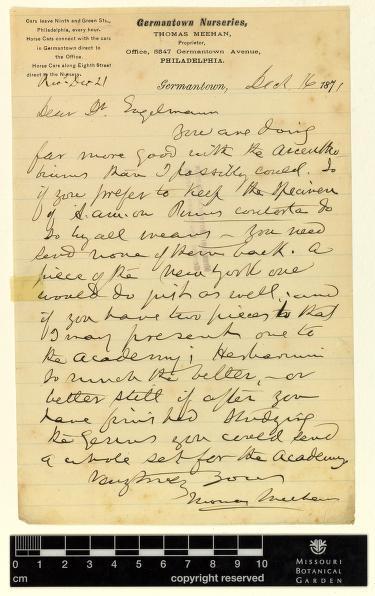 Cars leave Ninth and Green Sts.,
Philadelphia, every hour.
Horse Cars connect with the cars
in Germantown direct to
the Office.
Horse Cars along Eighth Street
direct to the Nursery.
Germantown Nurseries,
THOMAS MEEHAN,
Proprietor,
Office, 5847 Germantown Avenue,
PHILADELPHIA.
Dec 21
Germantown, Dec 16 1871
Dear Dr. Engelmann
You are doing
far more good with the Arceutho
biums than I possibly could. So
if you prefer to keep the specimen
of A. am: on Pinus contorta do
so by all means – you need
send none of them back. A
piece of the New York one
would do just as well; and
if you have two pieces so that
I may present one to
the Academy's Herbarium
so much the better, – or
better still if after you
have finished studying
the Genus you could send
a whole set for the Academy.
Very truly Yours
Thomas Meehan
0 1 2 3 4 5 6 7 8 9 10
cm
copyright reserved
MISSOURI
BOTANICAL
GARDEN